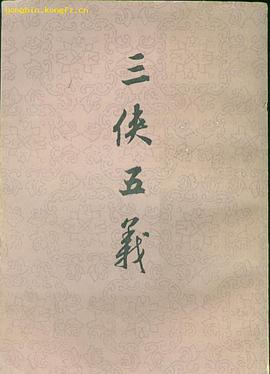 gongbin.kongfz.cn
三侠五義